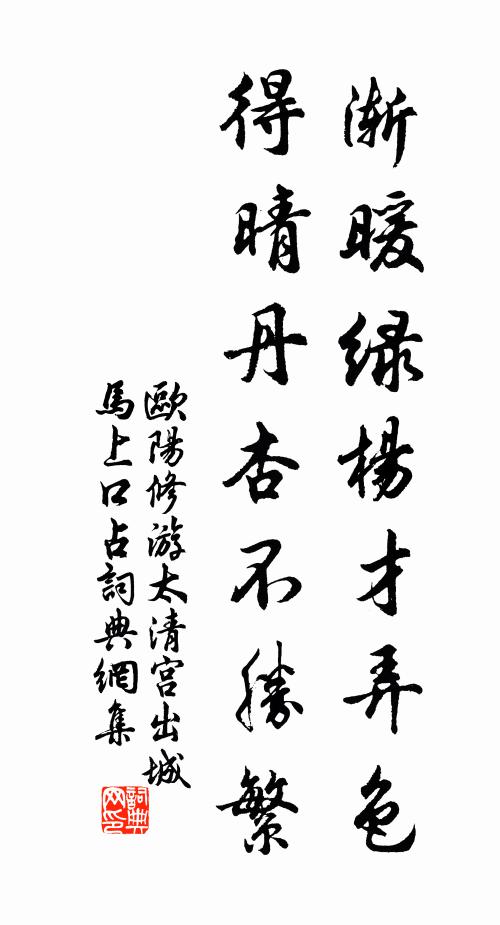 漸暖綠楊才弄色
得晴丹杏不勝繁
歐陽修游太清宮出城
馬上口占詞典網集
詞典
网印